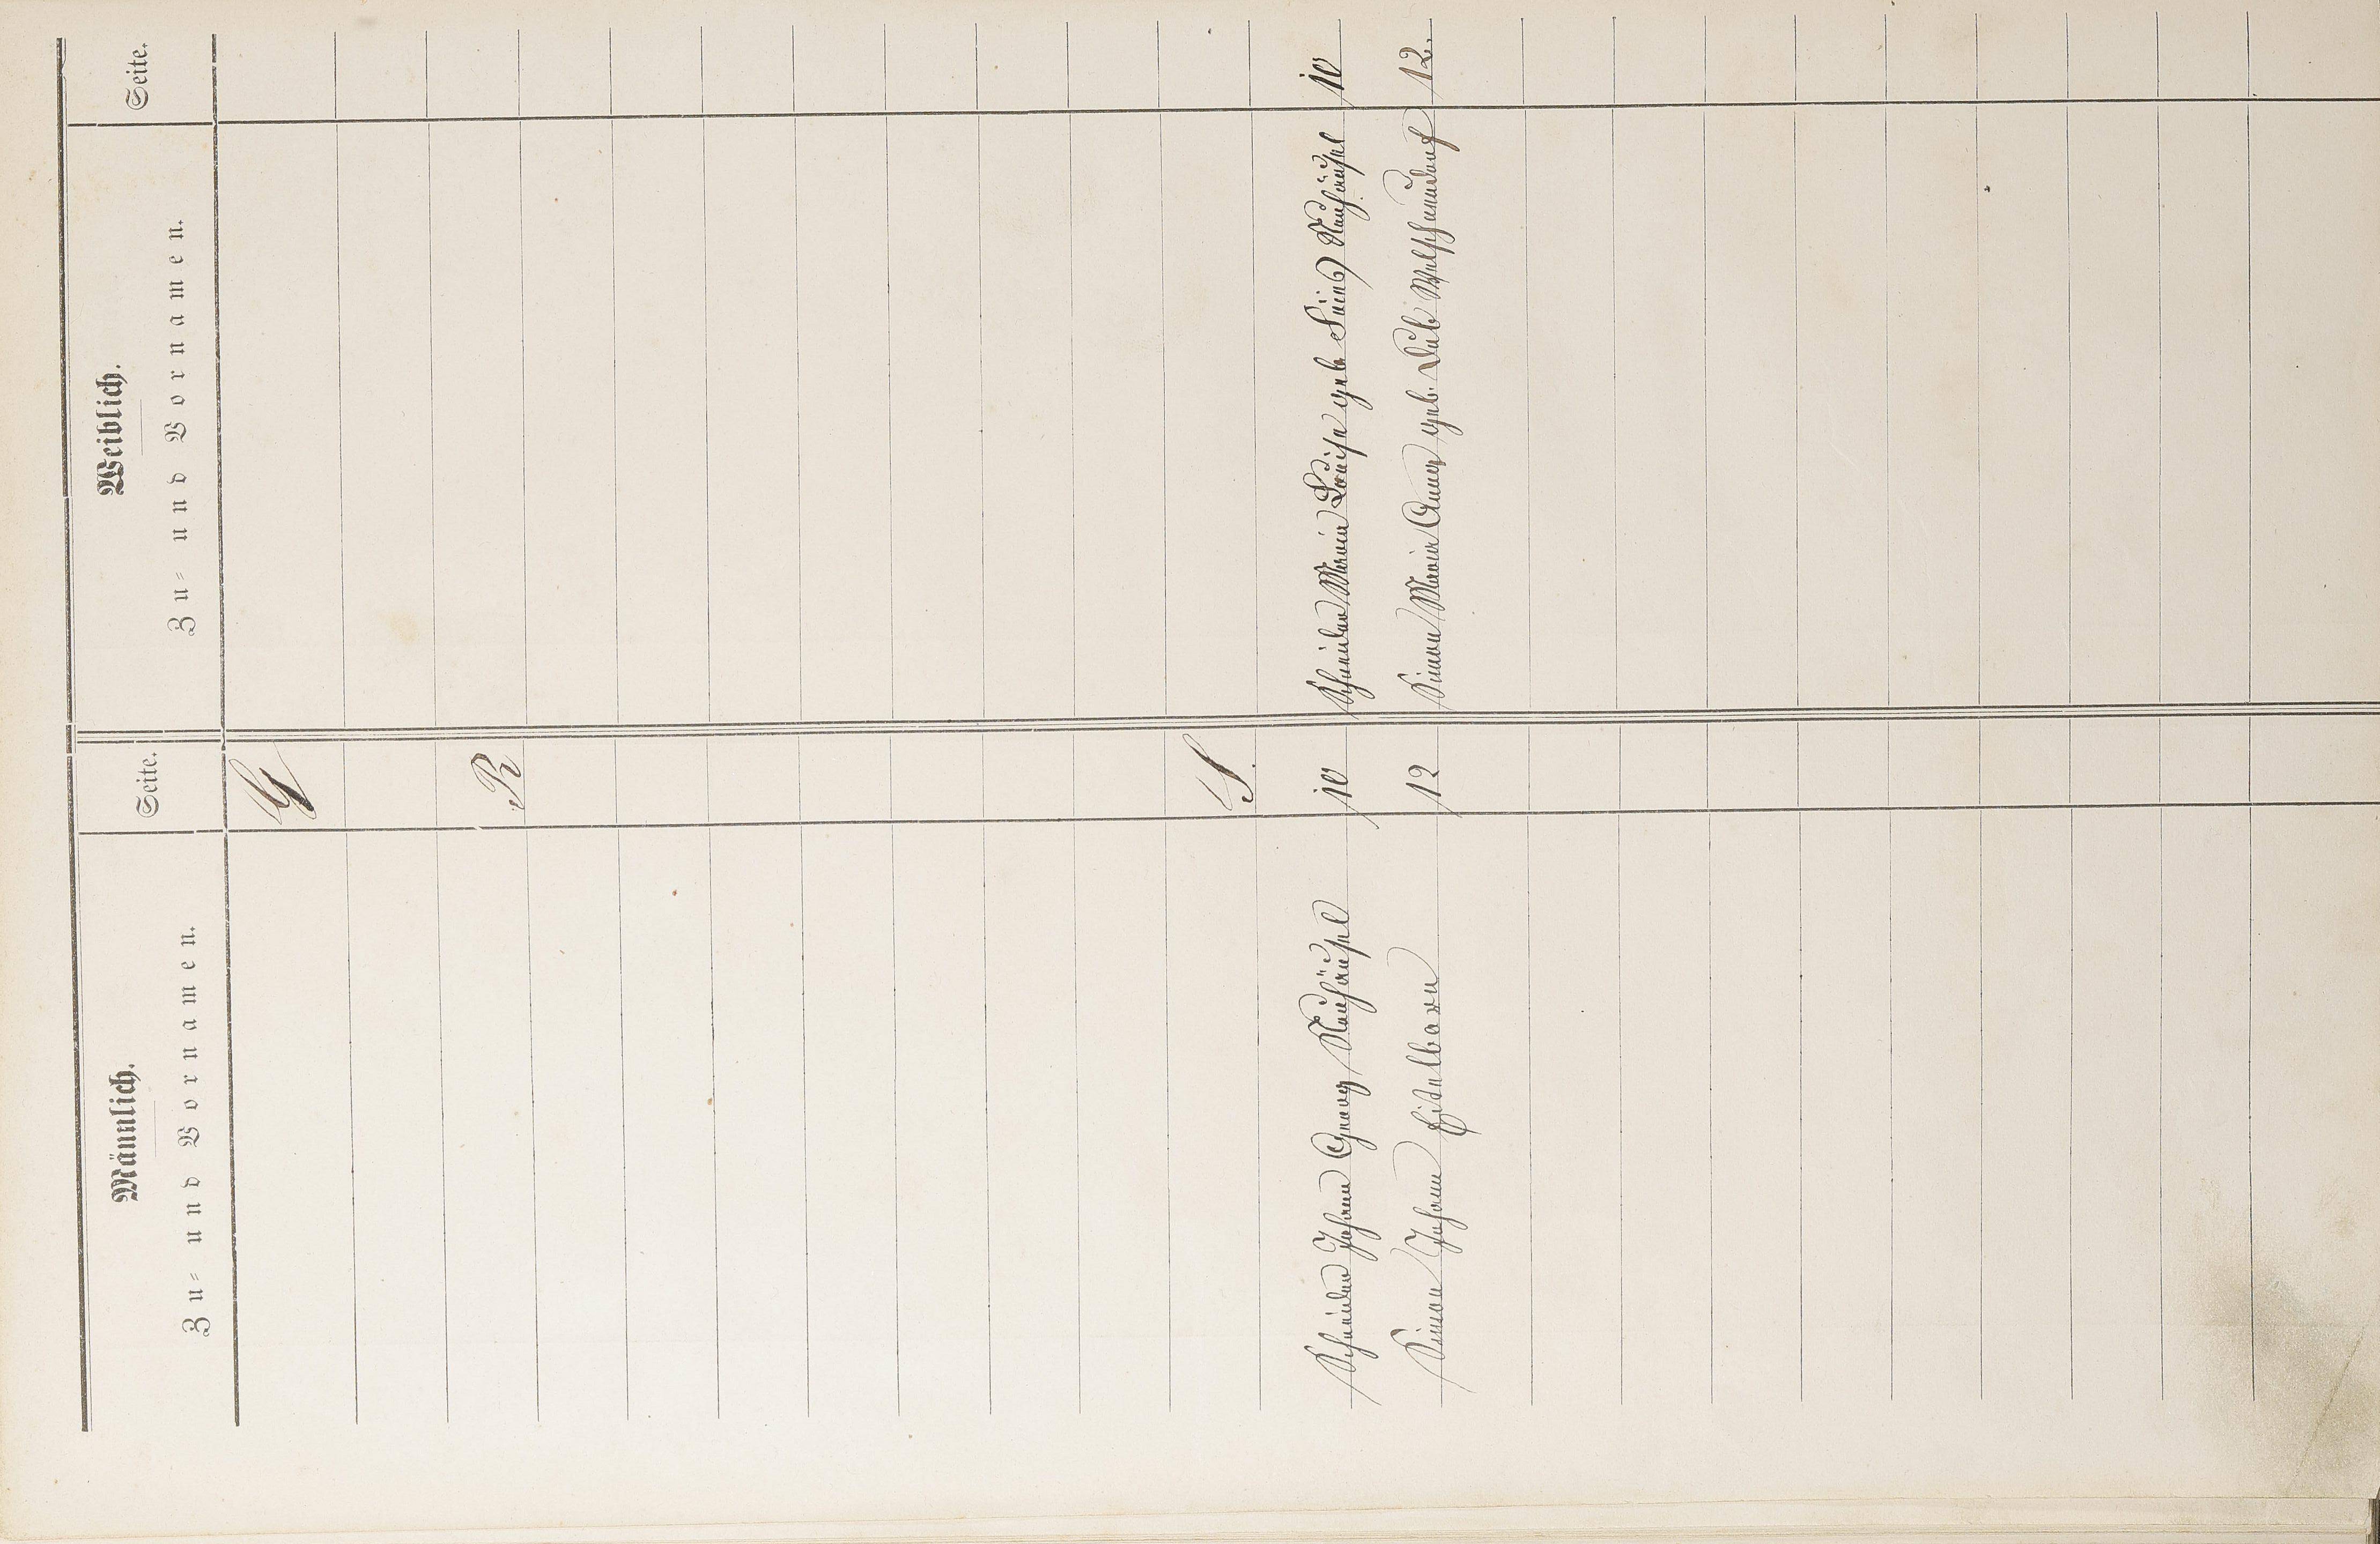 Männlich.
Zu- und Vornamen.
Seite.
Weiblich.
Zu- und Vornamen.
Seite.
R
S.
Schneider Johann Georg Neuhäusel 10
Schneider Maria Louise geb. Neuhäusel 10
Simon Johann Eitelborn 12
Simon Maria Anna geb. Welschneudorf 12.